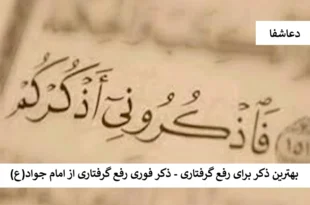 دعاشفا
فَاذْكُرُونِيٓ أَذْكُرْكُمْ
١٥١
بهترین ذکر برای رفع گرفتاری - ذکر فوری رفع گرفتاری از امام جواد(ع)